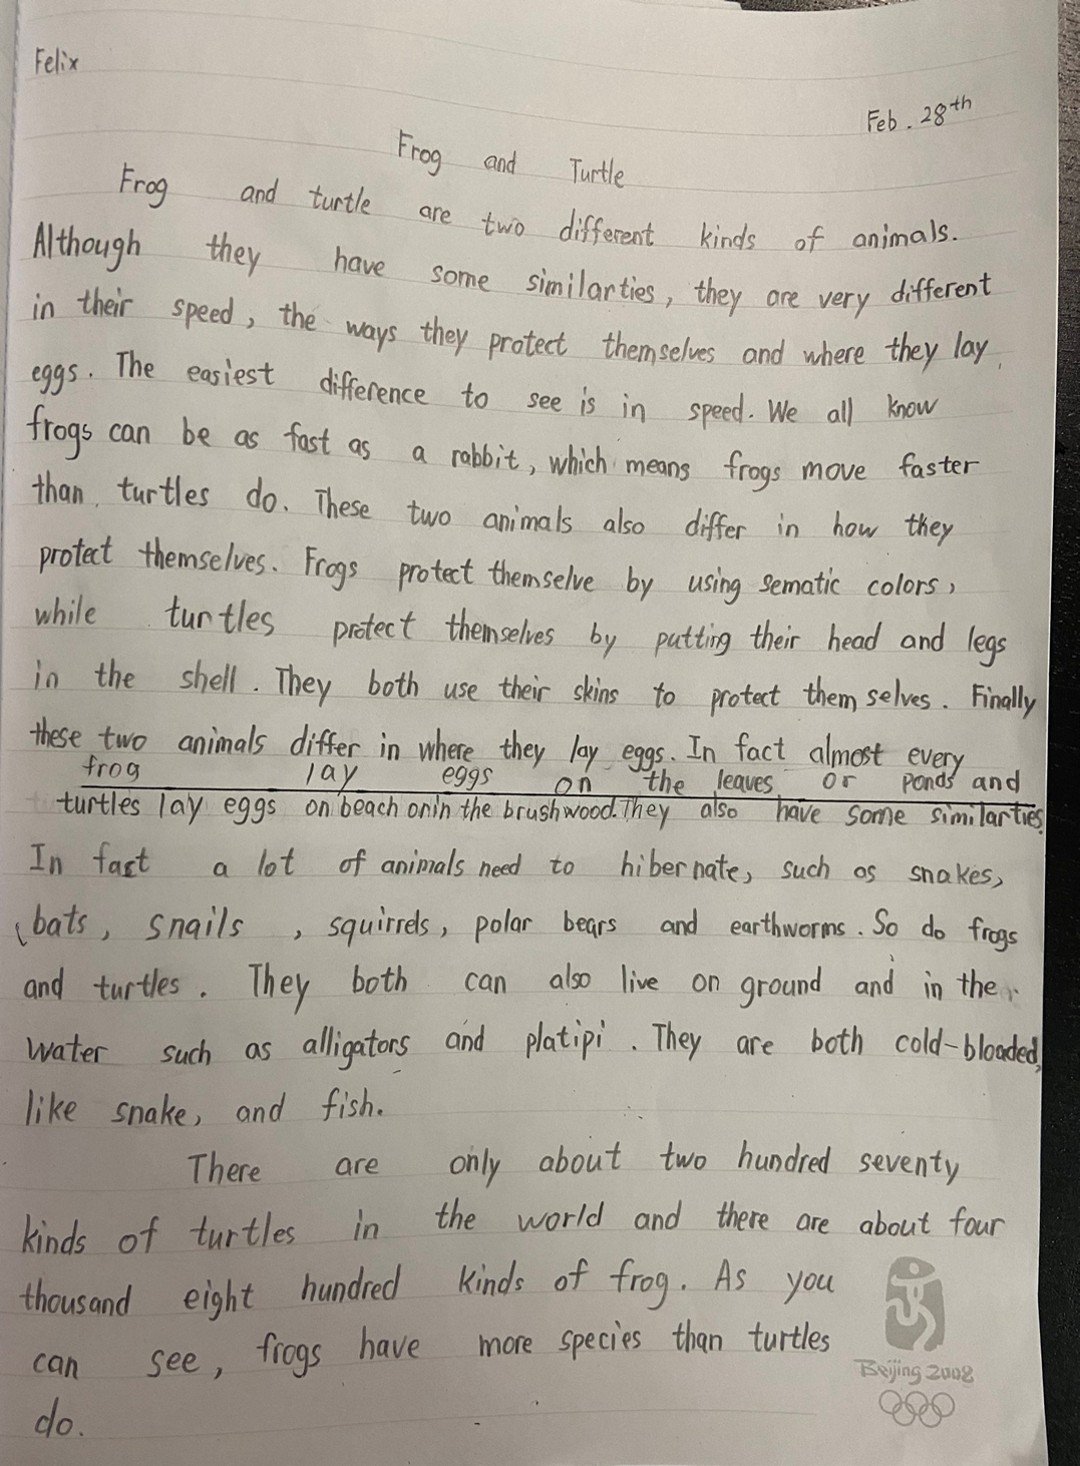 Felix
Feb. 28th
Frog and Turtle
Frog and turtle are two different kinds of animals.
Although they have some similarties, they are very different
in their speed, the ways they protect themselves and where they lay
eggs. The easiest difference to see is in speed. We all know
frogs can be as fast as a rabbit, which means frogs move faster
than turtles do. These two animals also differ in how they
protect themselves. Frogs protect themselve by using sematic colors,
while turtles protect themselves by putting their head and legs
in the shell. They both use their skins to protect them selves. Finally
these two animals differ in where they lay eggs. In fact almost every
frog lay eggs on the leaves or ponds and
turtles lay eggs on beach orin the brushwood. They also have some similarties.
In fact a lot of animals need to hibernate, such as snakes,
bats, snails, squirrels, polar bears and earthworms. So do frogs
and turtles. They both can also live on ground and in the
water such as alligators and platipi. They are both cold-blooded,
like snake, and fish.
There are only about two hundred seventy
kinds of turtles in the world and there are about four
thousand eight hundred kinds of frog. As you
can see, frogs have more species than turtles
do.
Beijing 2008